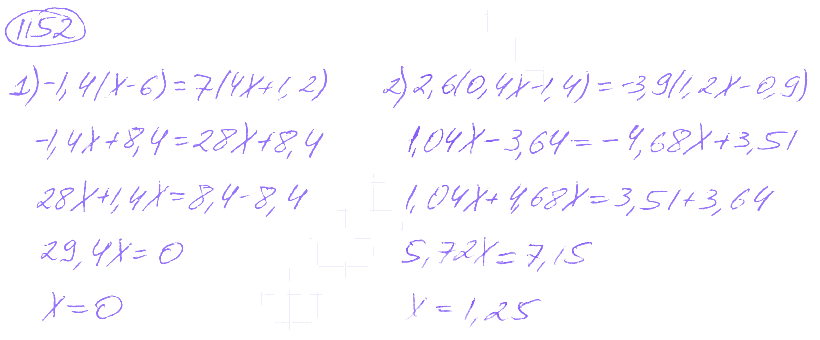 1152
1) -1,4(x-6)=7(4x+1,2)
-1,4x+8,4=28x+8,4
28x+1,4x=8,4-8,4
29,4x=0
x=0
2) 2,6(0,4x-1,4)=-3,9(1,2x-0,9)
1,04x-3,64=-4,68x+3,51
1,04x+4,68x=3,51+3,64
5,72x=7,15
x=1,25